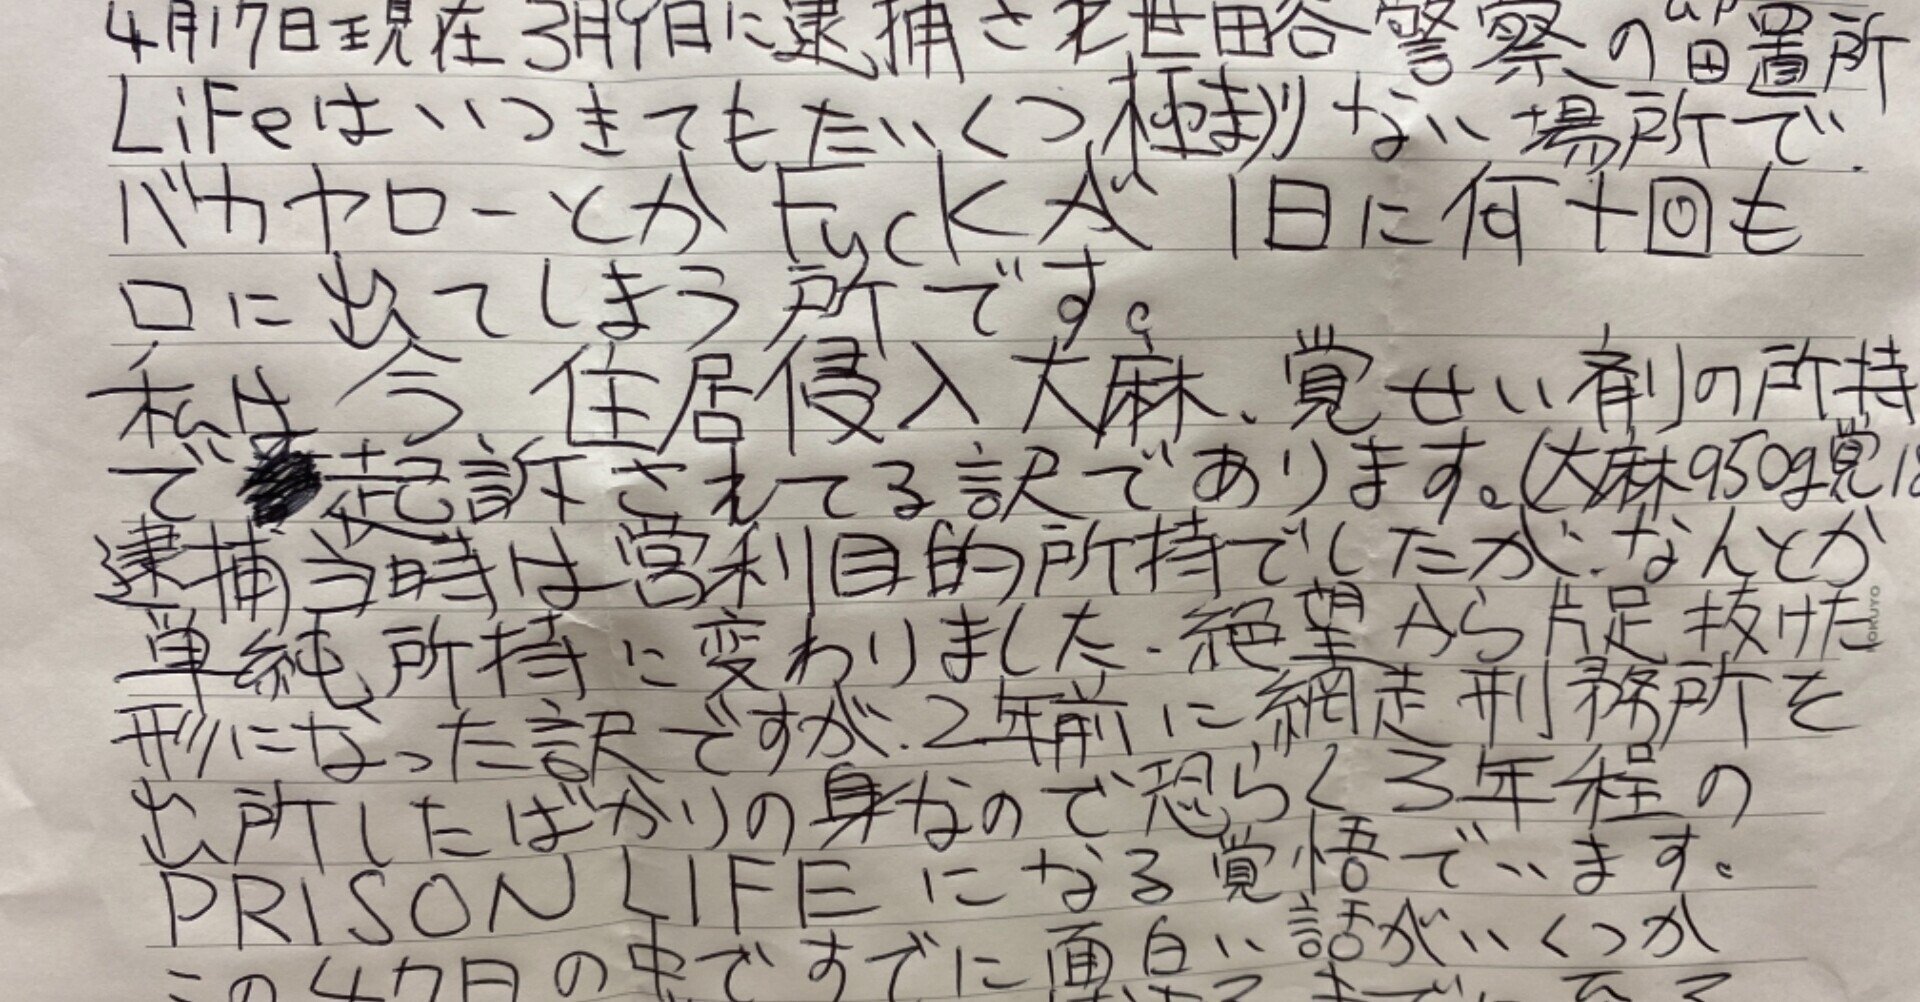 4月17日現在3月9日に逮捕され世田谷警察の留置所
LiFeはいつきてもたいくつ極まりない場所で、
バカヤローとかFucKが1日に何十回も
口に出てしまう所です。
私は今住居侵入大麻、覚せい剤の所持
で起訴されてる訳であります。(大麻950g覚18
逮捕当時は営利目的所持でしたが、なんとか
単純所持に変わりました、絶望から片足抜けた
形になった訳ですが、2年前に網走刑務所を
出所したばかりの身なので恐らく3年程の
PRISON LIFEになる覚悟でいます。
この47日の中ですでに面白い話がいくつか
KOKUYO